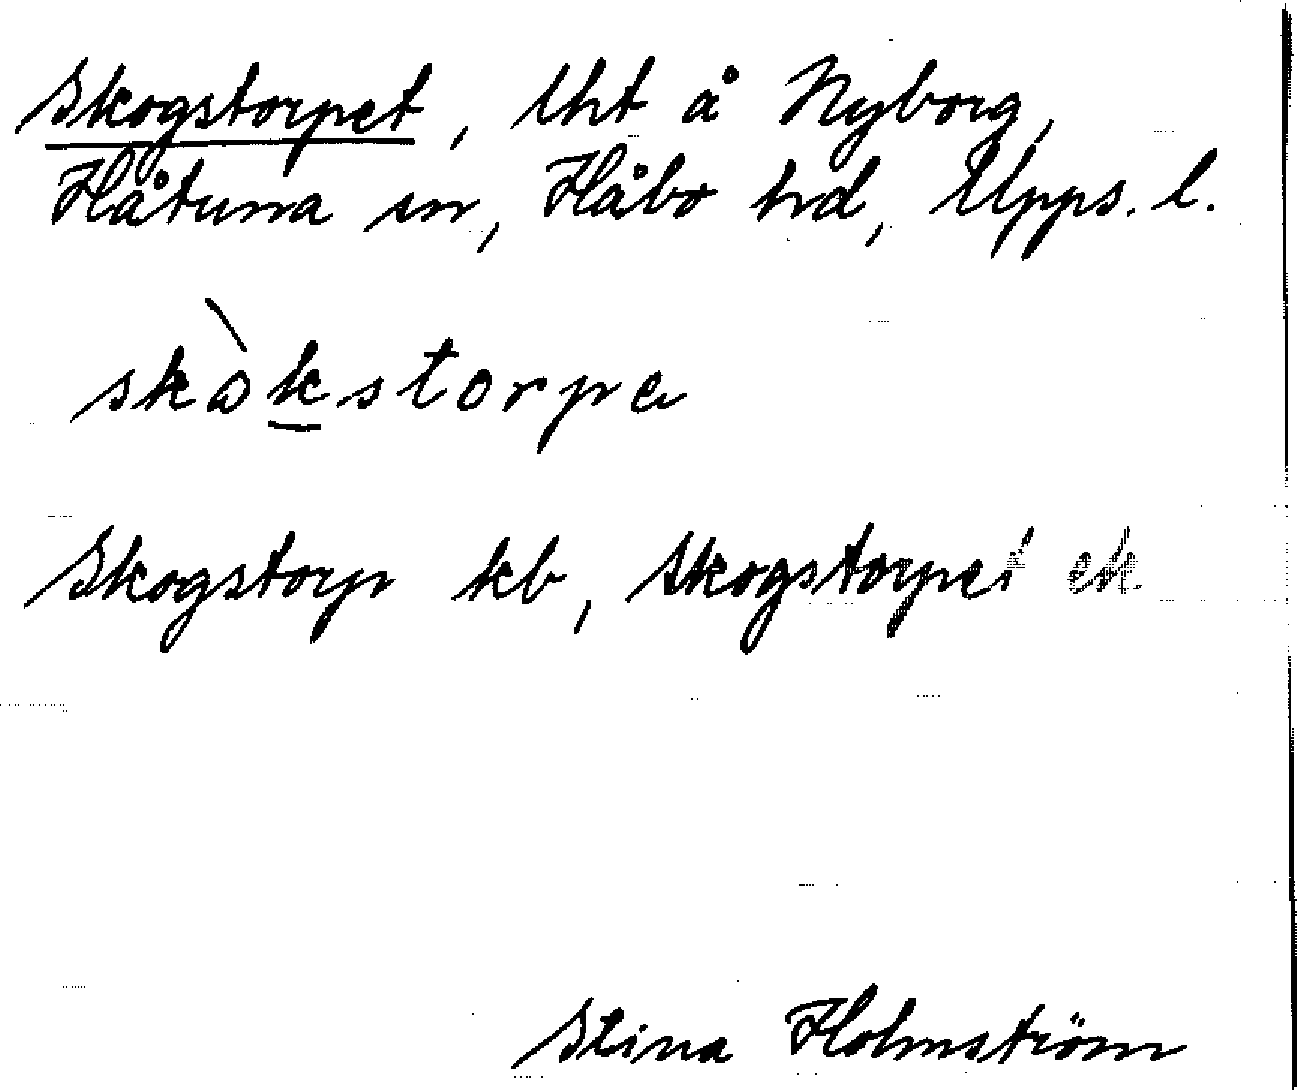 Skogstorpet, lht å Nyborg,
Håtuna sn, Håbo hd, Upps. l.
skòkstorpa
Skogstorp kb, Skogstorpet ek
Stina Holmström